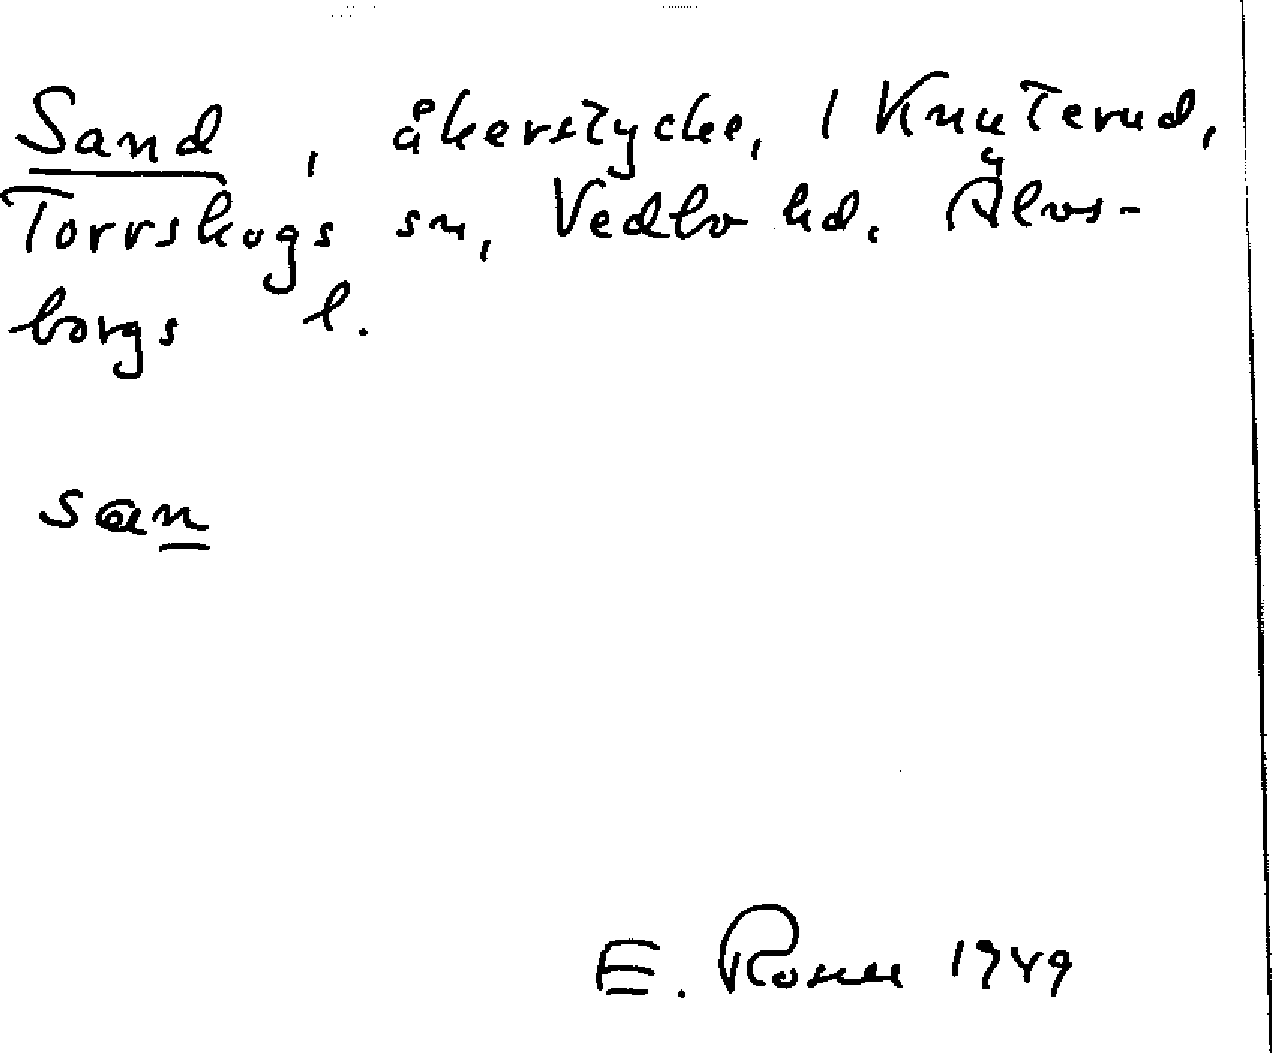 Sand, åkerstycke, 1 Knuterud,
Torrskogs sn, Vedbo hd. Älvs-
borgs l.
san
E. Rosell 1949